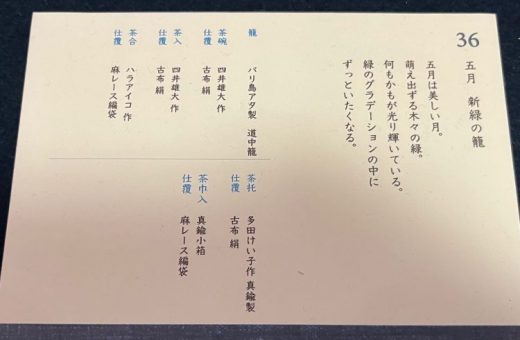 36
五月 新緑の籠
五月は美しい月。
萌え出ずる木々の緑。
何もかもが光り輝いている。
緑のグラデーションの中に
ずっといたくなる。
籠 バリ島アタ製 道中籠
茶碗 四井雄大 作
仕覆 古布 絹
茶入 四井雄大 作
仕覆 古布 絹
茶合 ハラアイコ 作
仕覆 麻レース編袋
茶托 多田けい子作 真鍮製
仕覆 古布 絹
茶巾入 真鍮小箱
仕覆 麻レース編袋